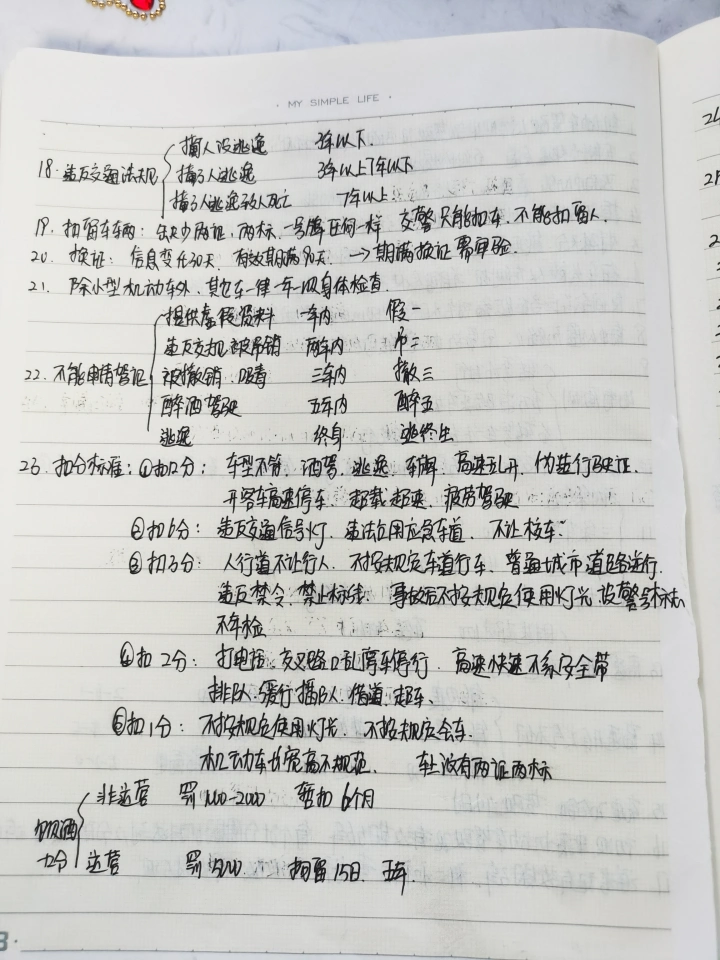 MY SIMPLE LIFE
撞人没逃逸 3年以下.
18. 违反交通法规 撞了人逃逸 3年以上7年以下
撞了人逃逸致人死亡 7年以上
19. 扣留车车辆: 缺少两证, 两标, 一号牌任何一样 交警只能扣车, 不能扣留人.
20. 换证: 信息变化30天. 有效期满90天. → 期满换证需审验.
21. 除小型机动车外, 其它车一律一年一次身体检查.
提供虚假资料 一年内 假一
违反交规被吊销 两年内 吊二
22. 不能申请驾证 被撤销、吸毒 三年内 撤三
醉酒驾驶 五年内 醉五
逃逸 终身 逃终生
23. 扣分标准: ①扣12分: 车型不符. 酒驾. 逃逸. 车牌. 高速乱开. 伪造行驶证.
开客车高速停车. 超载超速. 疲劳驾驶
②扣6分: 违反交通信号灯. 违法占用应急车道. 不让校车
③扣3分: 人行道不让行人. 不按规定车道行车. 普通城市道路逆行.
违反禁令. 禁止标线. 事故后不按规定使用灯光. 设警告标志
不年检
④扣2分: 打电话. 交叉路口乱停车停行. 高速快速不系安全带
排队. 缓行插队. 借道. 超车.
⑤扣1分: 不按规定使用灯光. 不按规定会车.
机动车长宽高不规范. 车上没有两证两标
非运营 罚1000-2000 暂扣6个月
饮酒
12分 运营 罚5000 拘留15日. 五年.